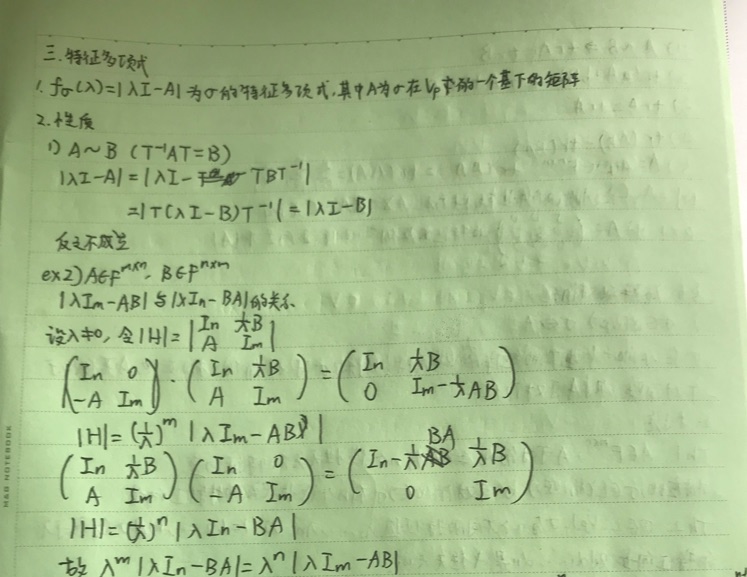 三.特征多项式
1. fσ(λ)=|λI-A| 为σ的特征多项式,其中A为σ在V_F中的一个基下的矩阵
2.性质
1) A~B (T⁻¹AT=B)
|λI-A|=|λI-TBT⁻¹|
=|T(λI-B)T⁻¹|=|λI-B|
反之不成立
ex2) A∈F^{m×n}, B∈F^{n×m}
|λIm-AB|与|λIn-BA|的关系
设λ≠0, 令|H|=|In 1/λB; A Im|
(In 0; -A Im)·(In 1/λB; A Im)=(In 1/λB; 0 Im-1/λAB)
|H|=(1/λ)^m |λIm-AB|
(In 1/λB; A Im)(In 0; -A Im)=(In-1/λBA 1/λB; 0 Im)
|H|=(1/λ)^n |λIn-BA|
故 λ^m|λIn-BA|=λ^n|λIm-AB|
M&G NOTEBOOK